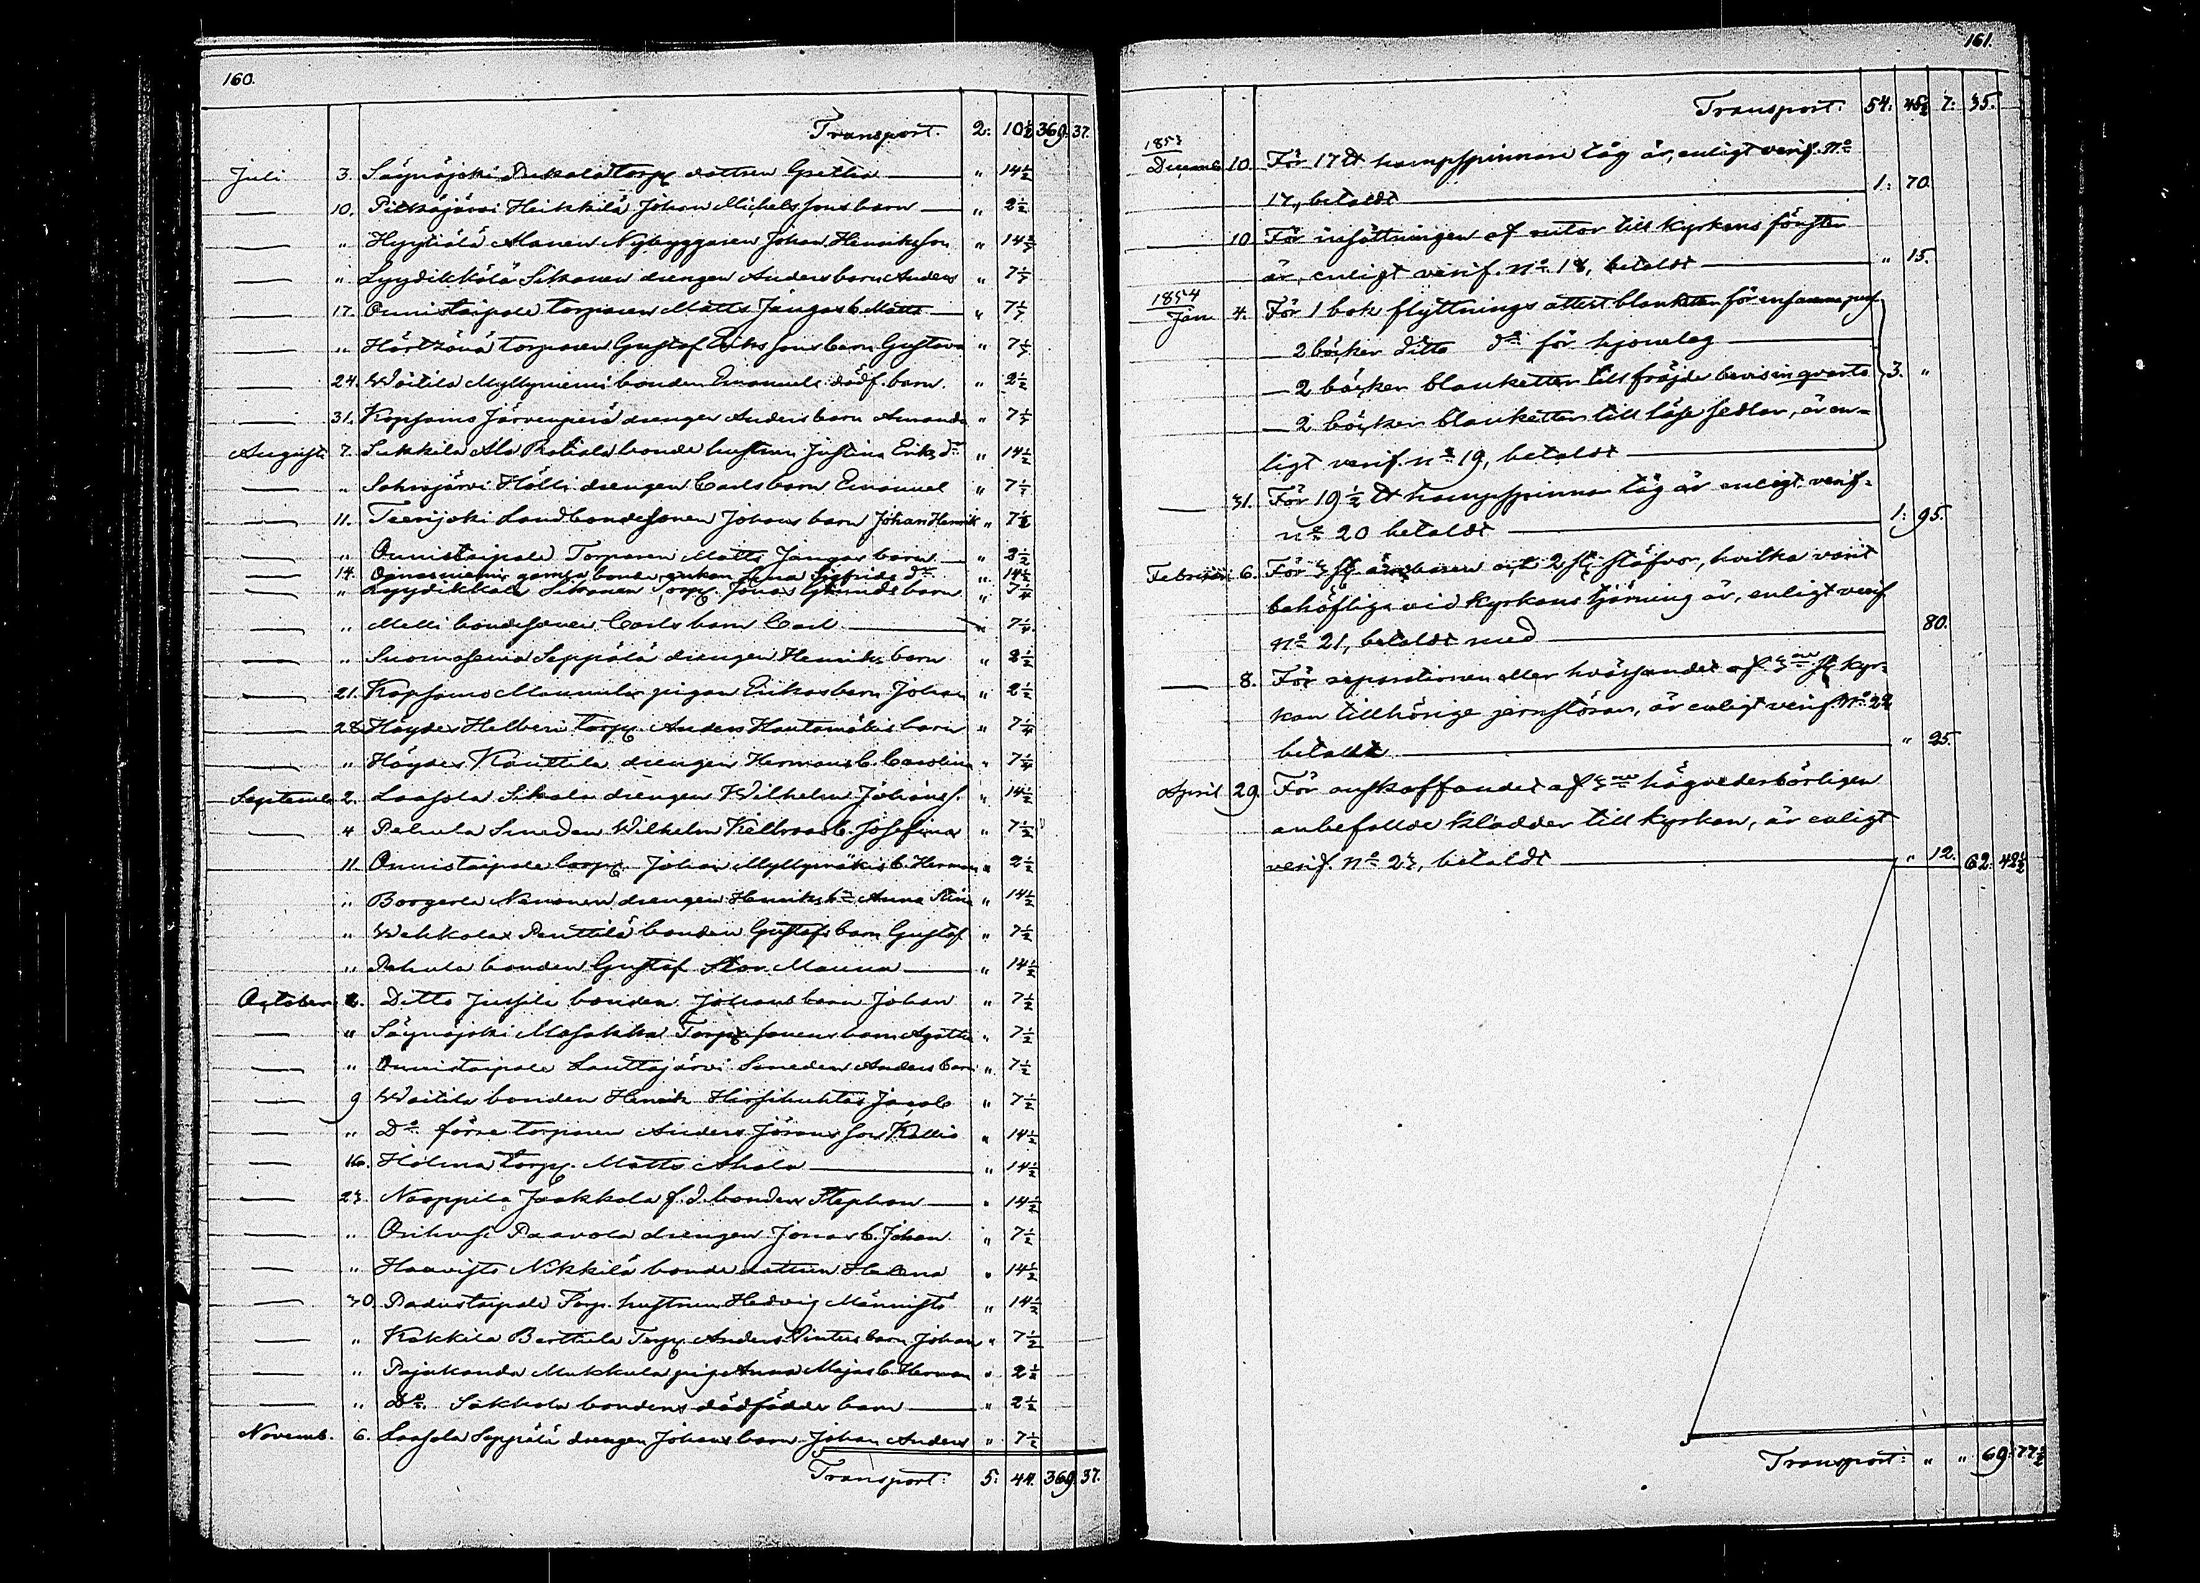 160.
Transport. 2: 10½ 369: 37.
Juli 3. Säynäjoki torp dottren Gretha " 14½
— 10. Pitkäjärvi Heikkilä Johan Michelssons barn " 2½
— " Hyytiälä Alanen Nybyggaren Johan Henriksson " 14½
— " Lyydikkälä Sikanen drengen Anders barn Anders " 7½
— 17. Onnistaipale torparen Matts Jangas b. Matts " 7½
— " torparen Gustaf Eriks sons barn Gustava " 7½
— 24. Woitila Myllyniemi bonden Emanuels dödf. barn. " 2½
— 31. Kopsamo Järvenpää drengen Anders barn Amanda " 7½
Augusti 7. Sukkila Ala Ratiala bonde hustrun Justina Eriks dr " 14½
— " Sahrajärvi Hölli drengen Carls barn Emanuel " 7½
— 11. Teerijoki Landbondesonen Johans barn Johan Henrik " 7½
— " Onnistaipale Torparen Matts Jangas barn " 2½
— 14. gamla bonde enkan Lena Sigfrids dr " 14½
— " Lyydikkälä Sikanen Torp. Jonas barn " 7½
— " Melli bondesonen Carls barn Carl " 7½
— " Suomasema Seppälä drengen Henriks barn " 2½
— 21. Kopsamo Maunula pigan Erikas barn Johan " 2½
— 28. Höydes Helberi torp. Anders Hautamäkis barn " 7½
— " Höydes Kauttila drengen Hermans b. Carolina " 7½
Septemb. 2. Laasola Sikala drengen Wilhelm Johans s. " 14½
— 4 Pehula Smeden Wilhelm b. Josefina " 7½
— 11. Onnistaipale torp. Johan Myllymäkis b. Herman " 2½
" Borgerla Nenonen drengen Henriks hu Anna Stina " 14½
" Wehkolax Penttilä bonden Gustafs barn Gustaf " 7½
" Pehula bonden Gustaf Mauna " 14½
October 2. Ditto Jussila bonden Johans barn Johan " 7½
— " Säynäjoki Masakka Torp. sonens barn Agatha " 7½
— " Onnistaipale Lauttajärvi Smeden Anders barn " 7½
— 9 Woitila bonden Henrik Hirsihuhtas Jacob " 7½
— " Do förra torparen Anders Jörans son Kallio " 14½
— 16. Holma torp. Matts Ahola " 14½
— 23. Noppila Jaakkola f.d. bonden Stephan " 14½
— " Orihvesi Paavola drengen Jonas b. Johan " 7½
— " Haavisto Nikkilä bonde dottren Helena " 14½
— 30 Padustaipale Torp. hustrun Hedvig Männistö " 14½
— " Kakkila Berttula Torp. Anders barn Johan " 7½
— " Pajukanda Mukkula pig. Anna Majas b. Herman " 2½
— " Do Sakkola bondens dödfödda barn " 2½
Novemb. 6. Laasola Seppälä drengen Johans barn Johan Anders " 7½
Transport: 5: 44. 369. 37.
161.
Transport: 54: 45½ 7: 35.
1853
Decemb. 10. För 17 ℔ hampspinnare tåg är, enligt verif. No
17, betaldt 1: 70.
— 10 För insättningen af rutor till Kyrkans fönster
är, enligt verif. No 18, betaldt " 15.
1854
Jan 4. För 1 bok flyttnings attest blanketter för ensamma pers.
— 2 böcker ditto do för hjonelag
— 2 böcker blanketter till fräjde bevis in qvarto 3. "
— 2 böcker blanketter till läse sedlar, är en-
ligt verif. No 19, betaldt
— 31. För 19½ ℔ hampspinnar tåg är enligt verif.
No 20 betaldt 1: 95.
Februari 6. För 3 st. ämbaren och 2 st. stäfvor, hvilka varit
behöfliga vid Kyrkans tjärning är, enligt verif
No 21, betaldt med 80.
— 8. För reparationen eller hvässandet af 3ne st. kyr-
kan tillhörige jernstörar, är enligt verif. No 22
betaldt " 25.
April 29. För anskaffandet af 3ne högvederbörligen
anbefallde klädder till kyrkan, är enligt
verif. No 23, betaldt " 12. 62: 42½
Transport: " " 69: 77½